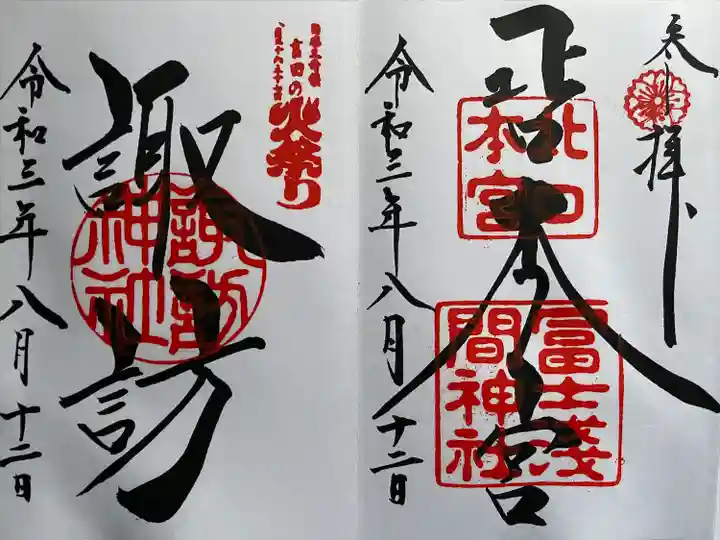 奉拝
北口本宮
北口
本宮
冨士淺
間神社
令和三年八月十二日
吉田の
火祭り
諏訪
諏訪
神社
令和三年八月十二日